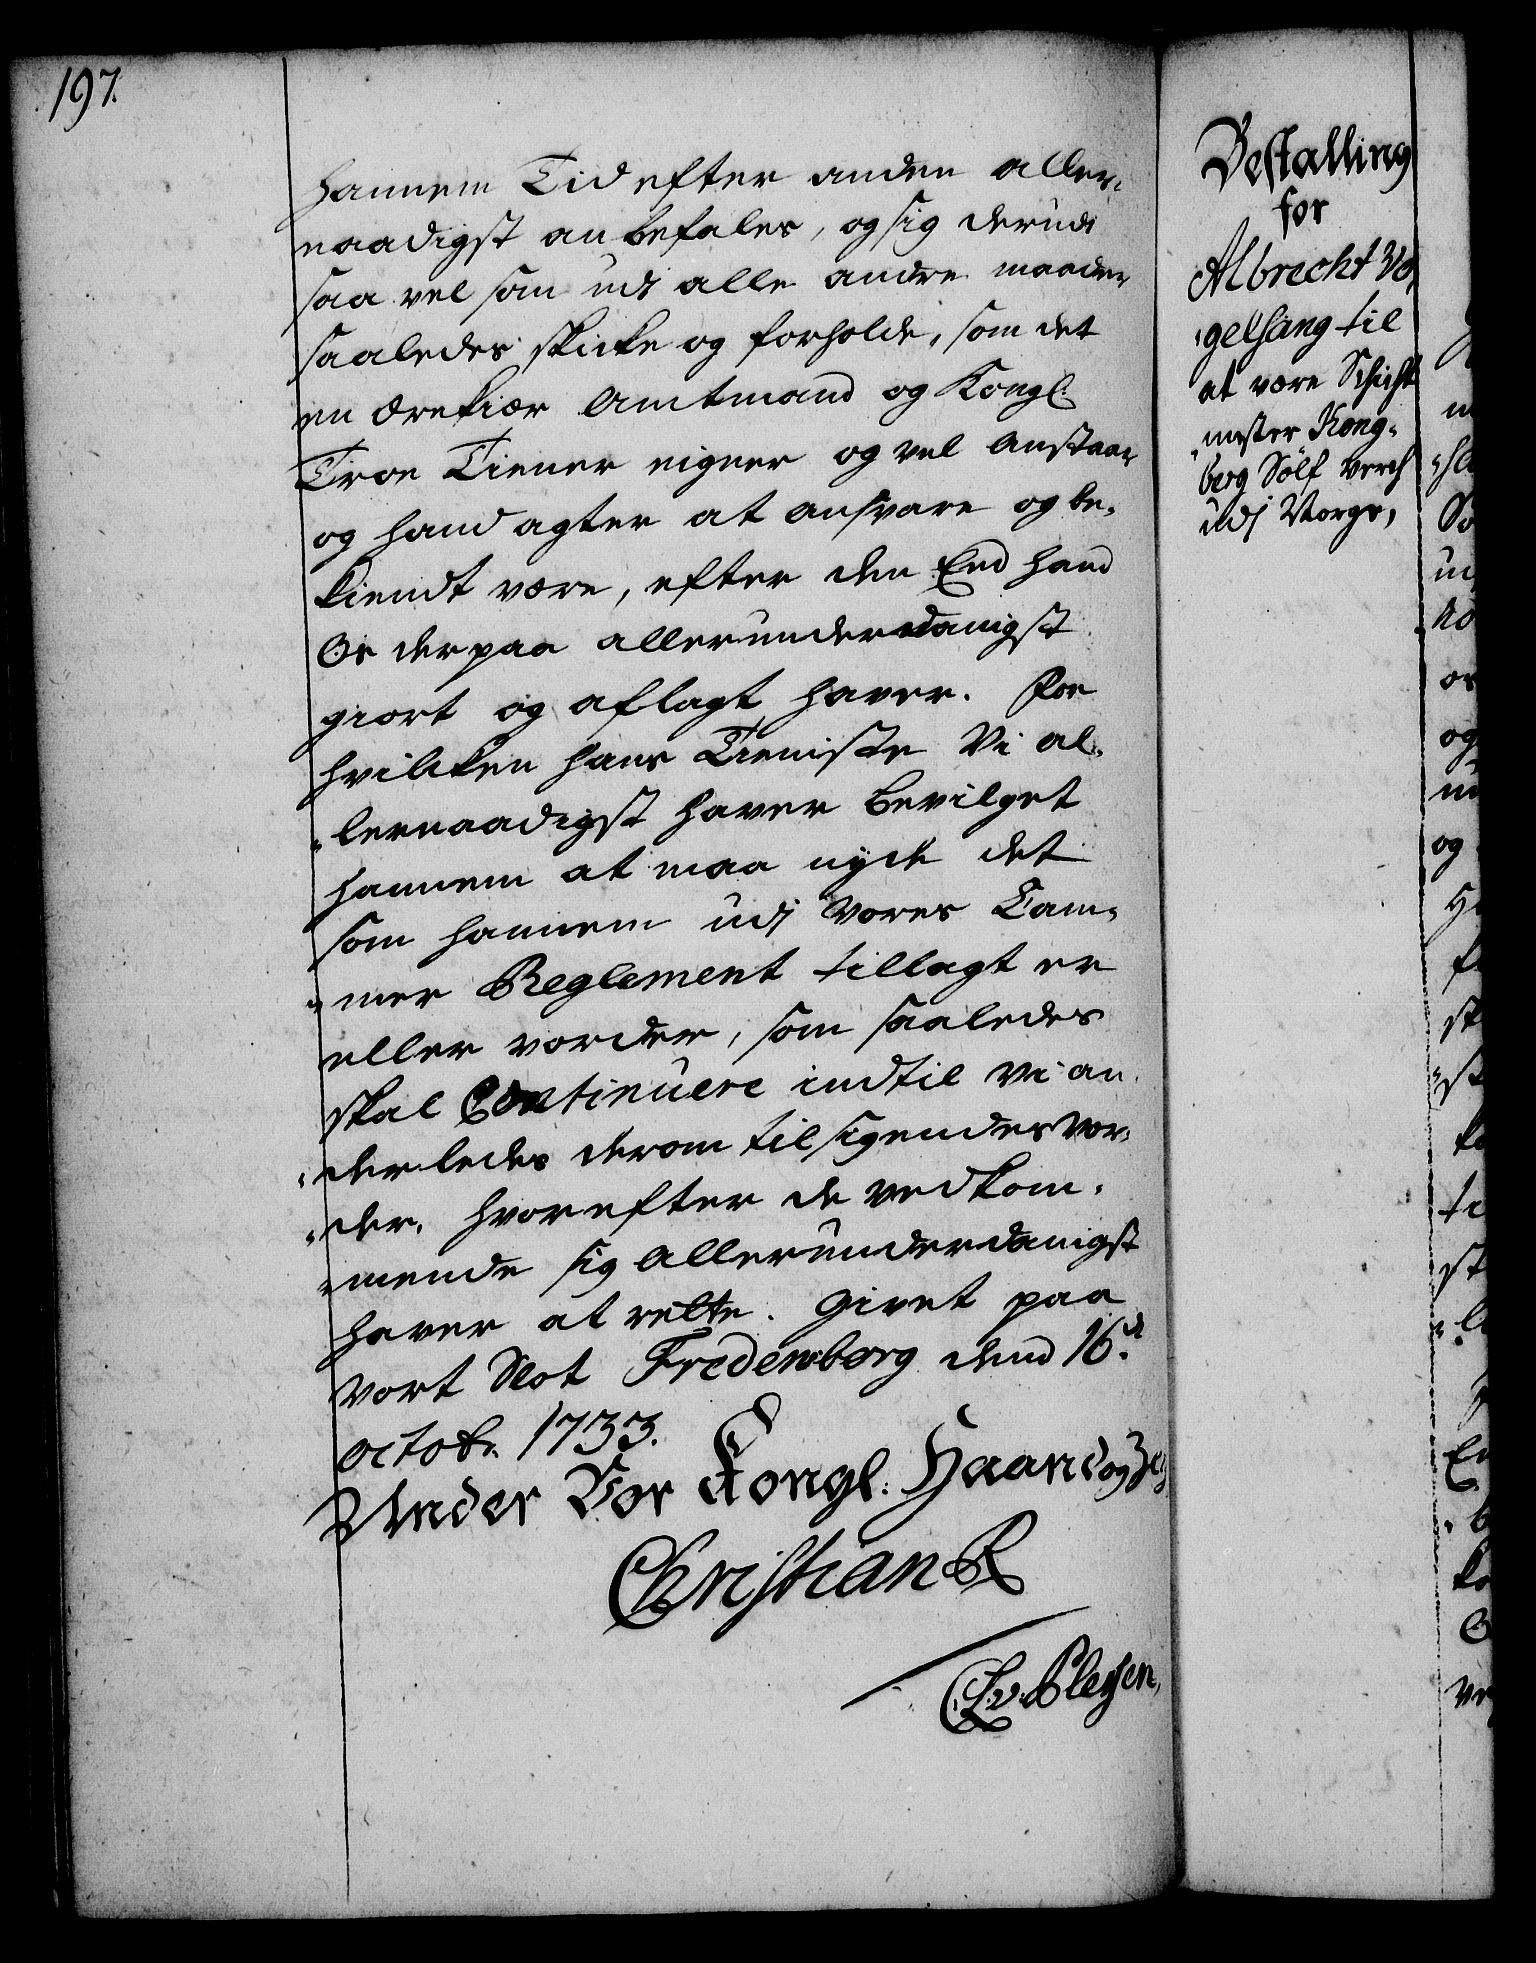 197.
hannem Tid efter anden aller¬
naadigst anbefales, og sig derudi
saa vel som udi alle andre maader
saaledes skicke og forholde, som det
en ærekiær Amtmand og Kongl.
Troe Tiener eigner og vel anstaar
og hand agter at ansvare og be¬
kiendt være, efter den Eed hand
Os derpaa allerunderdanigst
giort og aflagt haver. For
hvilcken hans Tieniste Vi al¬
lernaadigst haver bevilget
hannem at maa nyde det
som hannem udj Vores Cam¬
mer Reglement tillagt er
eller vorder, som saaledes
skal Continuere indtil Vi an¬
derledes derom tilsigendes vor¬
der. hvorefter de vedkom¬
mende sig allerunderdanigst
haver at rette. Givet paa
Vort Slot Fredensborg dend 16.d
octobr. 1733.
Under Vor Kongl: Haand og
Christian R
C. L. v. Plessen,
Bestalling
for
Albrecht Vo¬
gelsang til
at være Schicht
mester Kong¬
berg Sølf Verch
udj Norge,